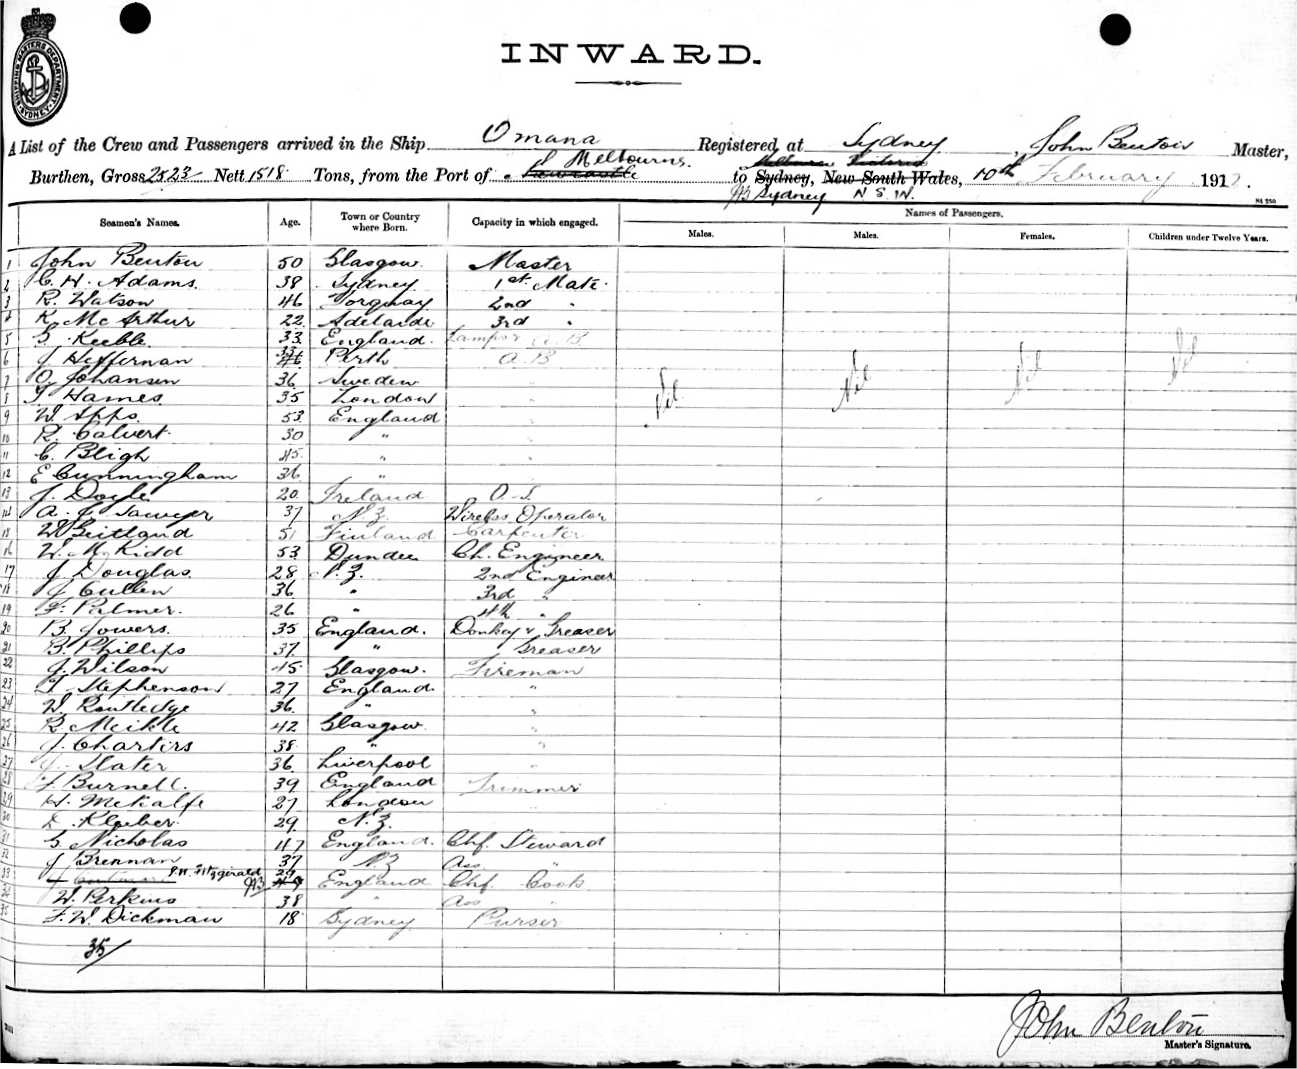 SHIPPING MASTERS DEPARTMENT SYDNEY
INWARD.
A List of the Crew and Passengers arrived in the Ship Omana Registered at Sydney, John Benton Master,
Burthen, Gross 2523 Nett 1518 Tons, from the Port of Newcastle Melbourne to Sydney, New South Wales, 10th February 191
JB Sydney N.S.W.
Seamen's Names. Age. Town or Country where Born. Capacity in which engaged. Names of Passengers.
Males. Males. Females. Children under Twelve Years.
1 John Benton 50 Glasgow Master
2 C. H. Adams. 38 Sydney 1st Mate
3 R. Watson 46 Torquay 2nd "
4 K. McArthur 22 Adelaide 3rd "
5 G. Keeble 33 England. Lamps & A.B
6 J Heffernan 33 46 Perth A.B
7 O. Johansen 36 Sweden "
8 T Hames 35 London "
9 W. Apps. 53 England "
10 R. Calvert 30 " "
11 C. Bligh 45 " "
12 E Cunningham 36 "
13 J. Doyle 20 Ireland O.S.
14 A. J. Sawyer 37 N.Z. Wireless Operator
15 W 51 Finland Carpenter
16 W. McKidd 53 Dundee Ch. Engineer
17 J Douglas 28 N.Z. 2nd Engineer
18 J Cullen 36 " 3rd "
19 F. Palmer. 26 " 4th "
20 B. Jowers. 35 England. Donkey & Greaser
21 B. Phillips 37 " Greaser
22 J. Wilson 45 Glasgow. Fireman
23 Stephenson 27 England "
24 W. Routledge 36 " "
25 R. Meikle 42 Glasgow "
26 J. Charters 38 " "
27 J. Slater 36 Liverpool "
28 F Burnell. 39 England Trimmer
29 H. Metcalfe 27 London
30 Kleber 29 N.Z.
31 G. Nicholas 47 England. Chf. Steward
32 J Brennan 37 N.Z Ass "
33 J.W. Fitzgerald JB 29 England Chf. Cook
34 W. Perkins 38 " Ass "
35 F. W. Dickman 18 Sydney Purser
Nil Nil Nil Nil
35/
John Benton
Master's Signature.